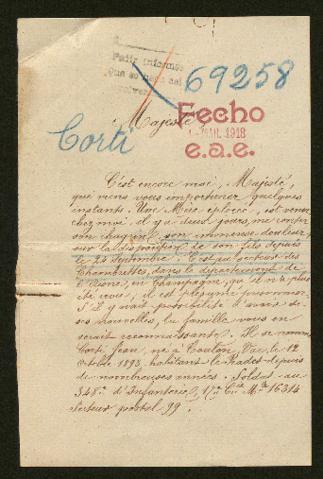 Pedir informes
que se
69258
Majesté,
Fecho
MAR. 1918
e.a.e.
Corti
C'est encore moi, Majesté,
qui viens vous importuner quelques
instants. Une Mère éplorée, est venue
chez moi il y a deux jours, me conter
son chagrin, son immense douleur,
sur la disparition de son fils depuis
le 24 Septembre. C'est au secteur des
Chambrettes, dans le département de
en Champagne, qu'il n'a plus
été revu; il est présumé prisonnier.
S'il y avait possibilité d'avoir de
ses nouvelles, la famille vous en
serait reconnaissante. Il se nomme
Corti Jean, né à Toulon, Var, le 12
Octobre 1893, habitant le Pradet depuis
de nombreuses années. Soldat au
348e d'Infanterie, 17e Cie Mle 16314
Secteur postal 99.